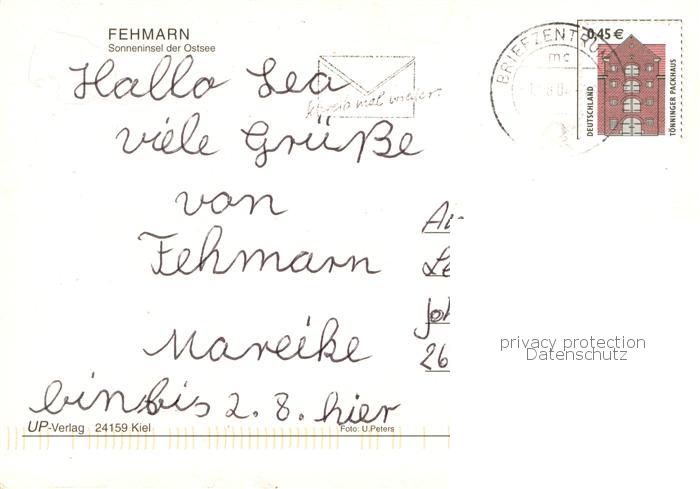 FEHMARN
Sonneninsel der Ostsee
Hallo Lea
viele Grüße
von
Fehmarn
Mareike
bin bis 2. 8. hier
UP-Verlag 24159 Kiel
Foto: U.Peters
Schreib mal wieder.
BRIEFZENTRUM
mc
0,45 €
DEUTSCHLAND
TÖNNINGER PACKHAUS
An
Le
Joh
26
privacy protection
Datenschutz